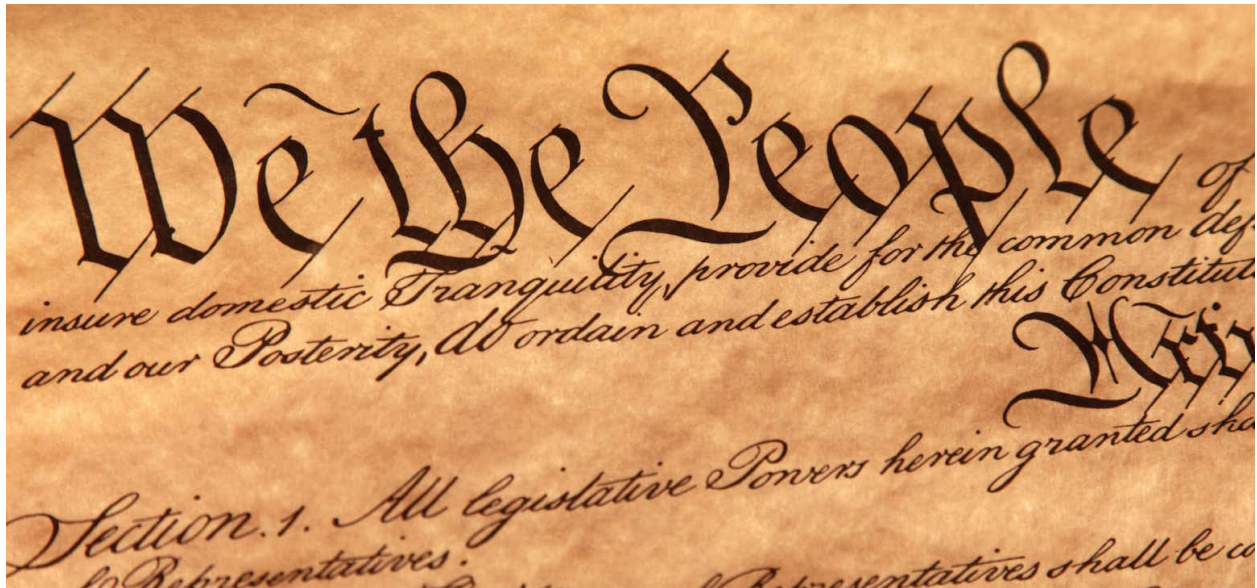 We the People of
insure domestic Tranquility, provide for the common def
and our Posterity, do ordain and establish this Constitut
Artic
Section. 1. All legislative Powers herein granted sha
of Representatives.
Representatives shall be co